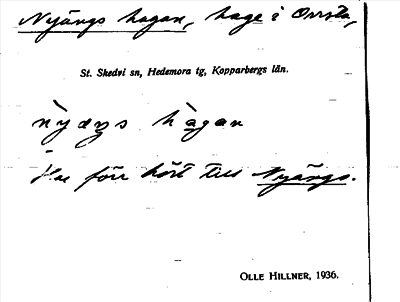 Nyängs hagan, hage i Orrsta,
St. Skedvi sn, Hedemora tg, Kopparbergs län.
hagan
Har förr hört till Nyängs.
OLLE HILLNER, 1936.